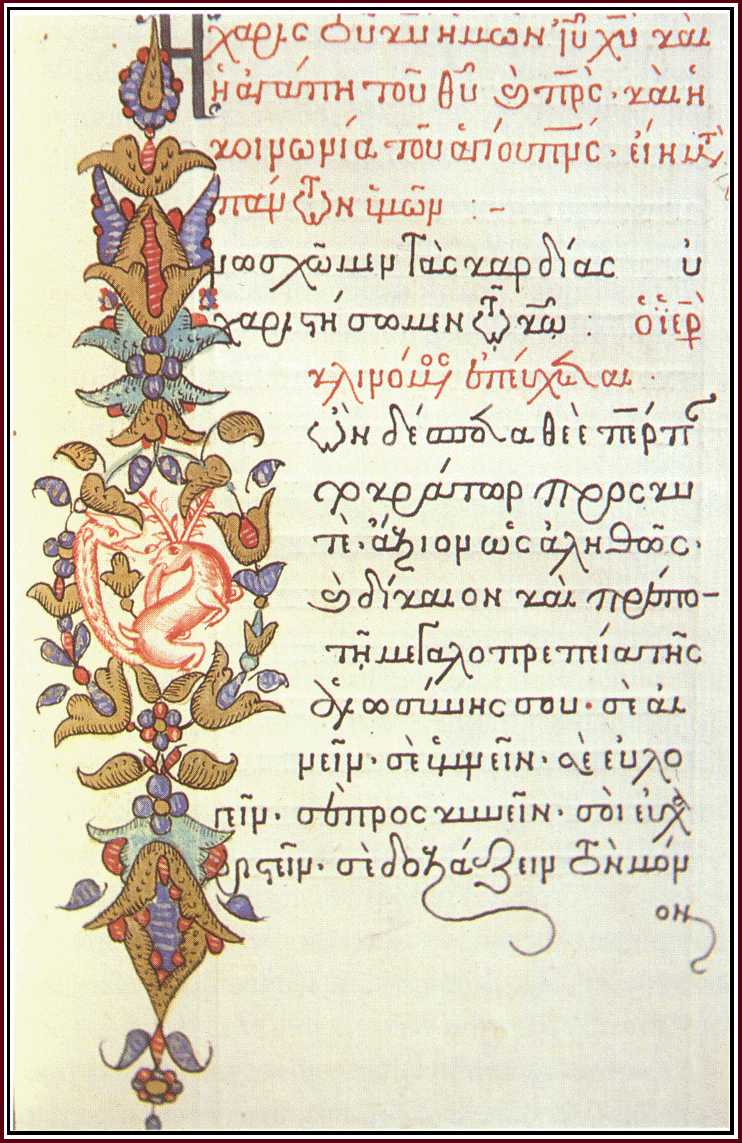 Ἡ χάρις τοῦ κυ ἡμῶν ἰυ χυ καὶ
ἡ ἀγάπη τοῦ θυ καὶ πρς· καὶ ἡ
κοινωνία τοῦ ἁγίου πνς· εἴη μετὰ
πάντων ὑμῶν :-
νωσχῶμεν τὰς καρδίας ὐ
χαριστήσωμεν τῷ κω : ὁ ἱερ
κλινόμενος ἐπεύχεται
ὢν δέσποτα θεὲ περ π
κράτωρ προσκυ
τὲ· ἄξιον ὡς ἀληθῶς·
καὶ δίκαιον καὶ πρέπο-
τῇ μεγαλοπρεπείᾳ τῆς
ἁγιωσύνης σου· σὲ αἰ
νεῖν· σὲ ὑμνεῖν· σὲ εὐλο
γεῖν· σὲ προσκυνεῖν· σοὶ εὐχα
ριστεῖν· σὲ δοξάζειν τὸν μόν
ον